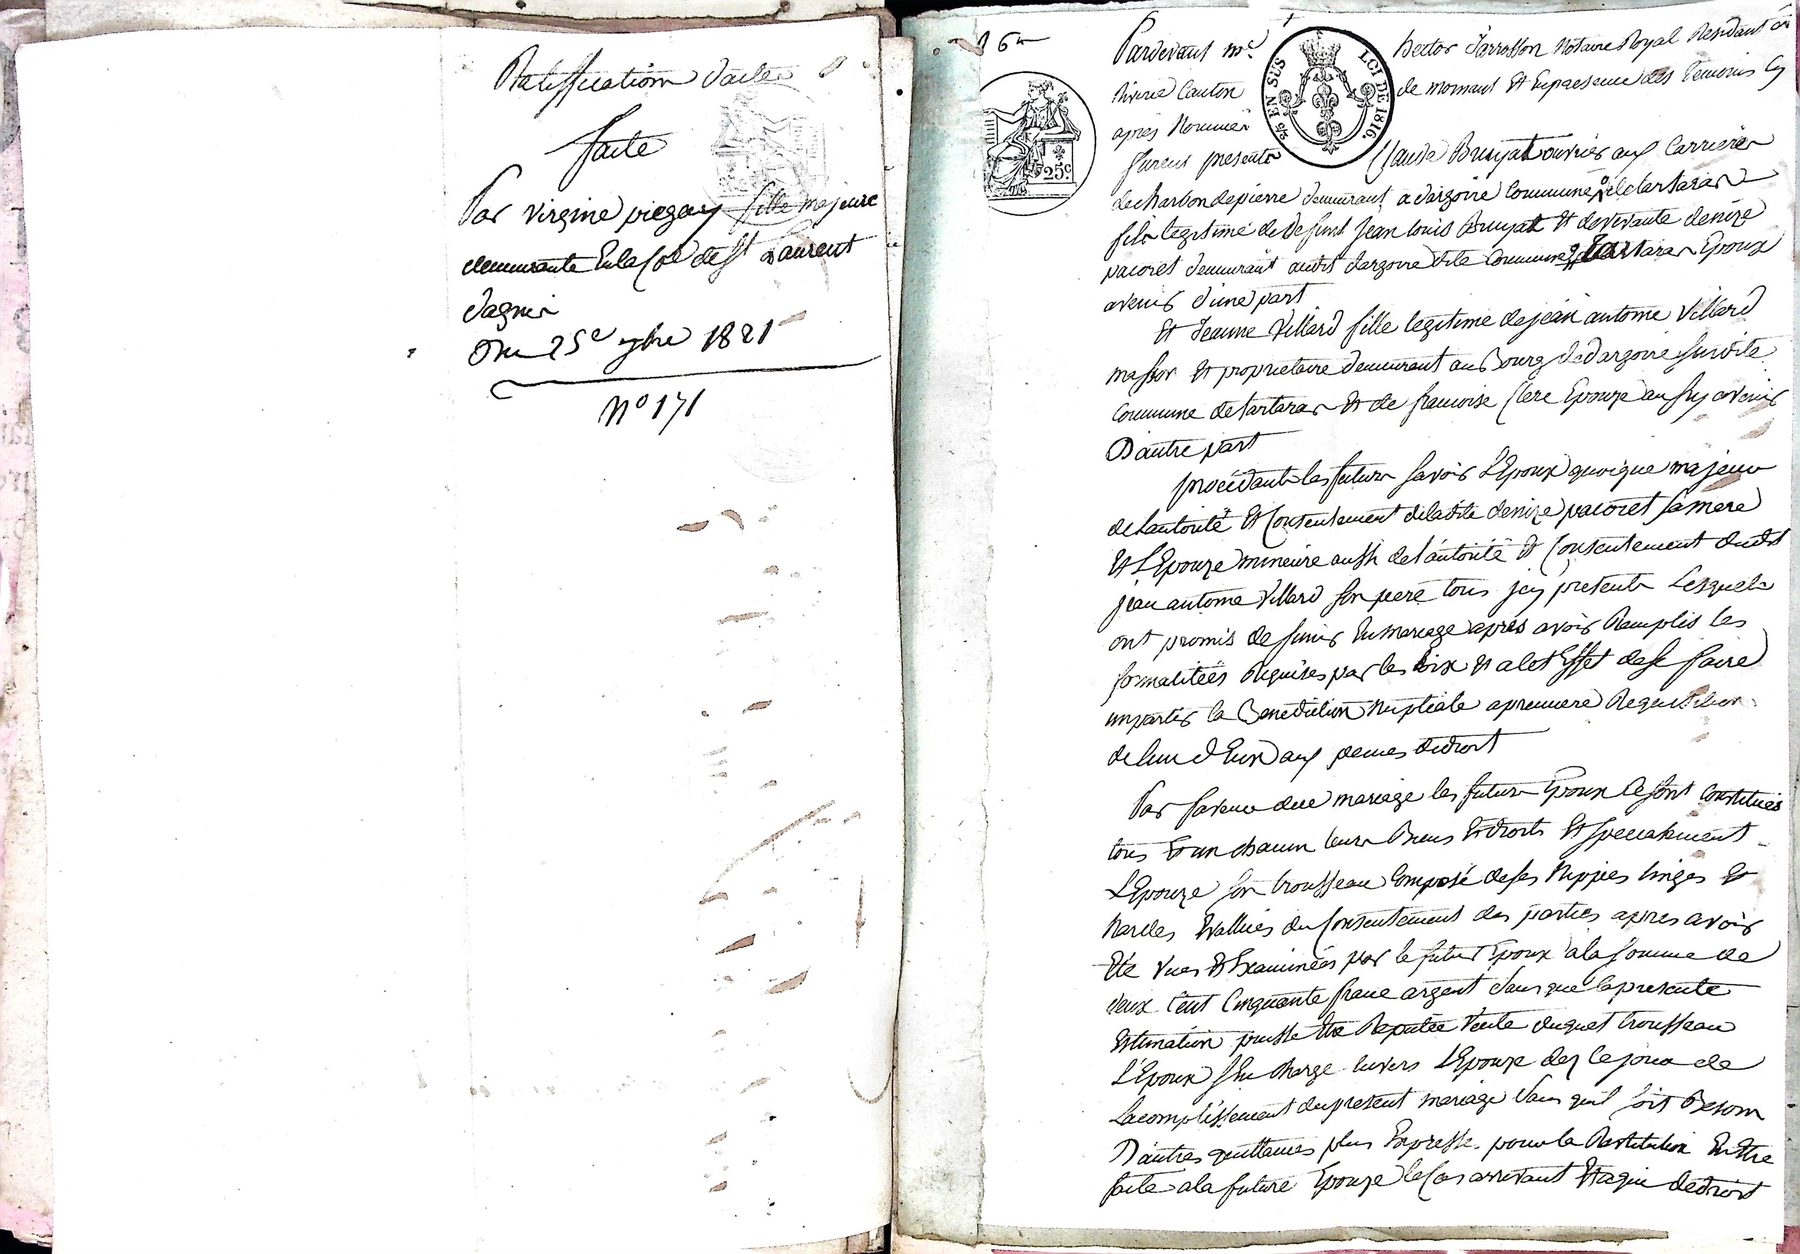 Ratiffication d'acte
faite
Par virgine piegay fille majeure
demeurante En la Coe de st Laurent
dagnir
Du 25e 9bre 1821
No 171
Pardevant me hector Jarrosson Notaire Royal Residant a
riverie Canton de mornant Et En presence des temoins Cy
après Nommés
5/6 EN SUS
LOI DE 1816.
25c
furent presents Claude Bruyat ouvrier aux Carrieres
de charbon de pierre demeurant a dargoire Commune de tartaras
fils legitime de defunt Jean louis Bruyat Et de vivante denize
pacoret demeurant audit dargoire dite Commune de tartaras Epoux
avenir d'une part
Et Jeanne Villard fille legitime de jean antoine Villard
masson Et proprietaire demeurant au Bourg de dargoire susdite
Commune de tartaras Et de francoise Clere Epouze aussy avenir
D'autre part
procédants les futurs savoir L'Epoux quoique majeur
de L'autorité Et Consentement de ladite denize pacoret sa mere
Et L'Epouze mineure aussi de l'autorité Et Consentement dudit
jean antoine Villard son pere tous jcy presents Lesquels
ont promis de s'unir En mariage après avoir Remplis les
formalitées Requises par les loix Et a cet Effet de se faire
impartir la Benediction Nuptiale a premiere Requisition
de l'un d'Eux aux peines de droit
Par faveur du mariage les futurs Epoux Se sont Constitués
tous Et un chacun leurs Biens Et droits Et specialement
L'Epouze son trousseau Composé de ses Nippes linges Et
hardes Evallués du Consentement des parties apres avoir
Eté vues Et Examinées par le futur Epoux a la somme de
deux Cent Cinquante franc argent sans que la presente
Estimation puisse Etre Reputée Vente duquel trousseau
L'Epoux s'En charge Envers L'Epouze dez le jour de
L'acomplissement du present mariage sans qu'il soit Besoin
D'autres quittances plus Expresse pour la Restitution En Etre
faite a la future Epouze le Cas arrivant Et a qui de droit